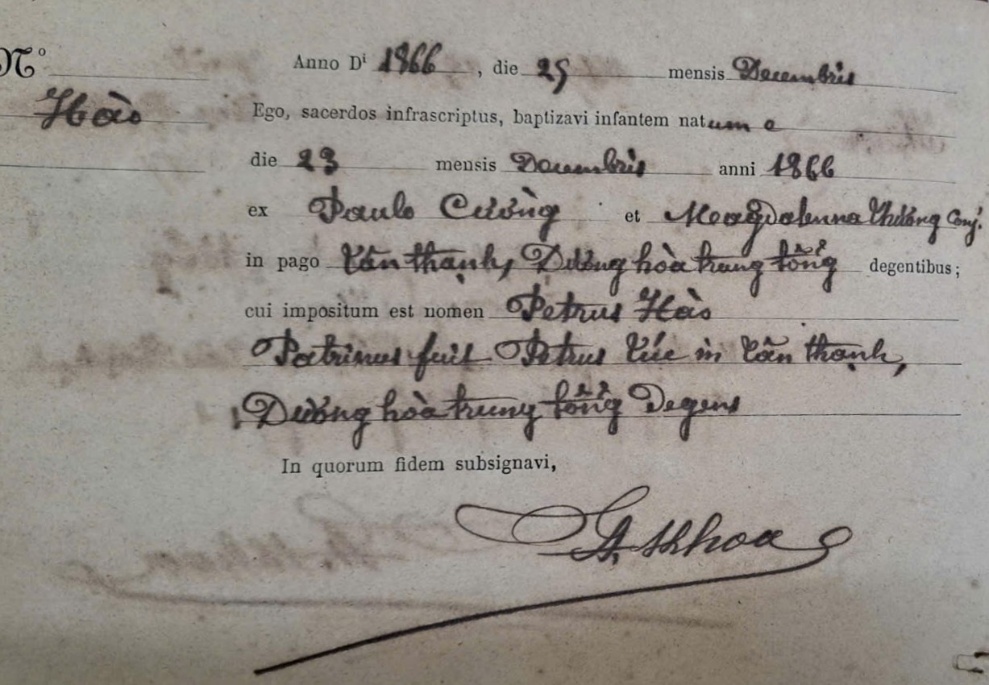 N.º
Anno Di 1866, die 25 mensis Decembris
Hào
Ego, sacerdos infrascriptus, baptizavi infantem natum e
die 23 mensis Decembris anni 1866
ex Paulo Cường et Magdalenna Thường Conj.
in pago Tân thạnh, Dương hòa trung tổng degentibus;
cui impositum est nomen Petrus Hào
Patrinus fuit Petrus Túc in Tân thạnh,
Dương hòa trung tổng Degens
In quorum fidem subsignavi,
khoa